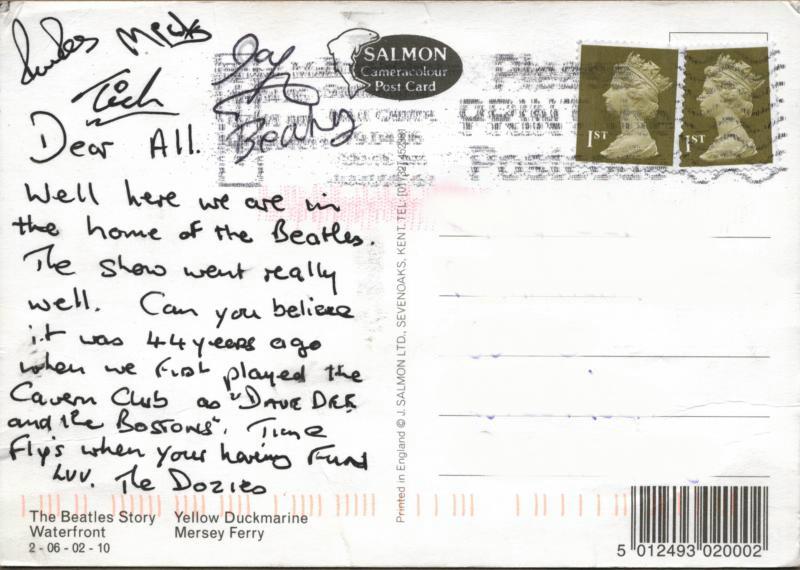 Micks
Tich
Beaky
Dear All.
Well here we are in
the home of the Beatles.
The show went really
well. Can you believe
it was 44 years ago
when we first played the
Cavern Club as "DAVE DEE
and the BOSTONS". Time
Flys when your having Fund
Luv. The Dozies
The Beatles Story Yellow Duckmarine
Waterfront Mersey Ferry
2 - 06 - 02 - 10
SALMON
Cameracolour
Post Card
1ST
1ST
Printed in England © J. SALMON LTD., SEVENOAKS, KENT. TEL:
5 012493 020002